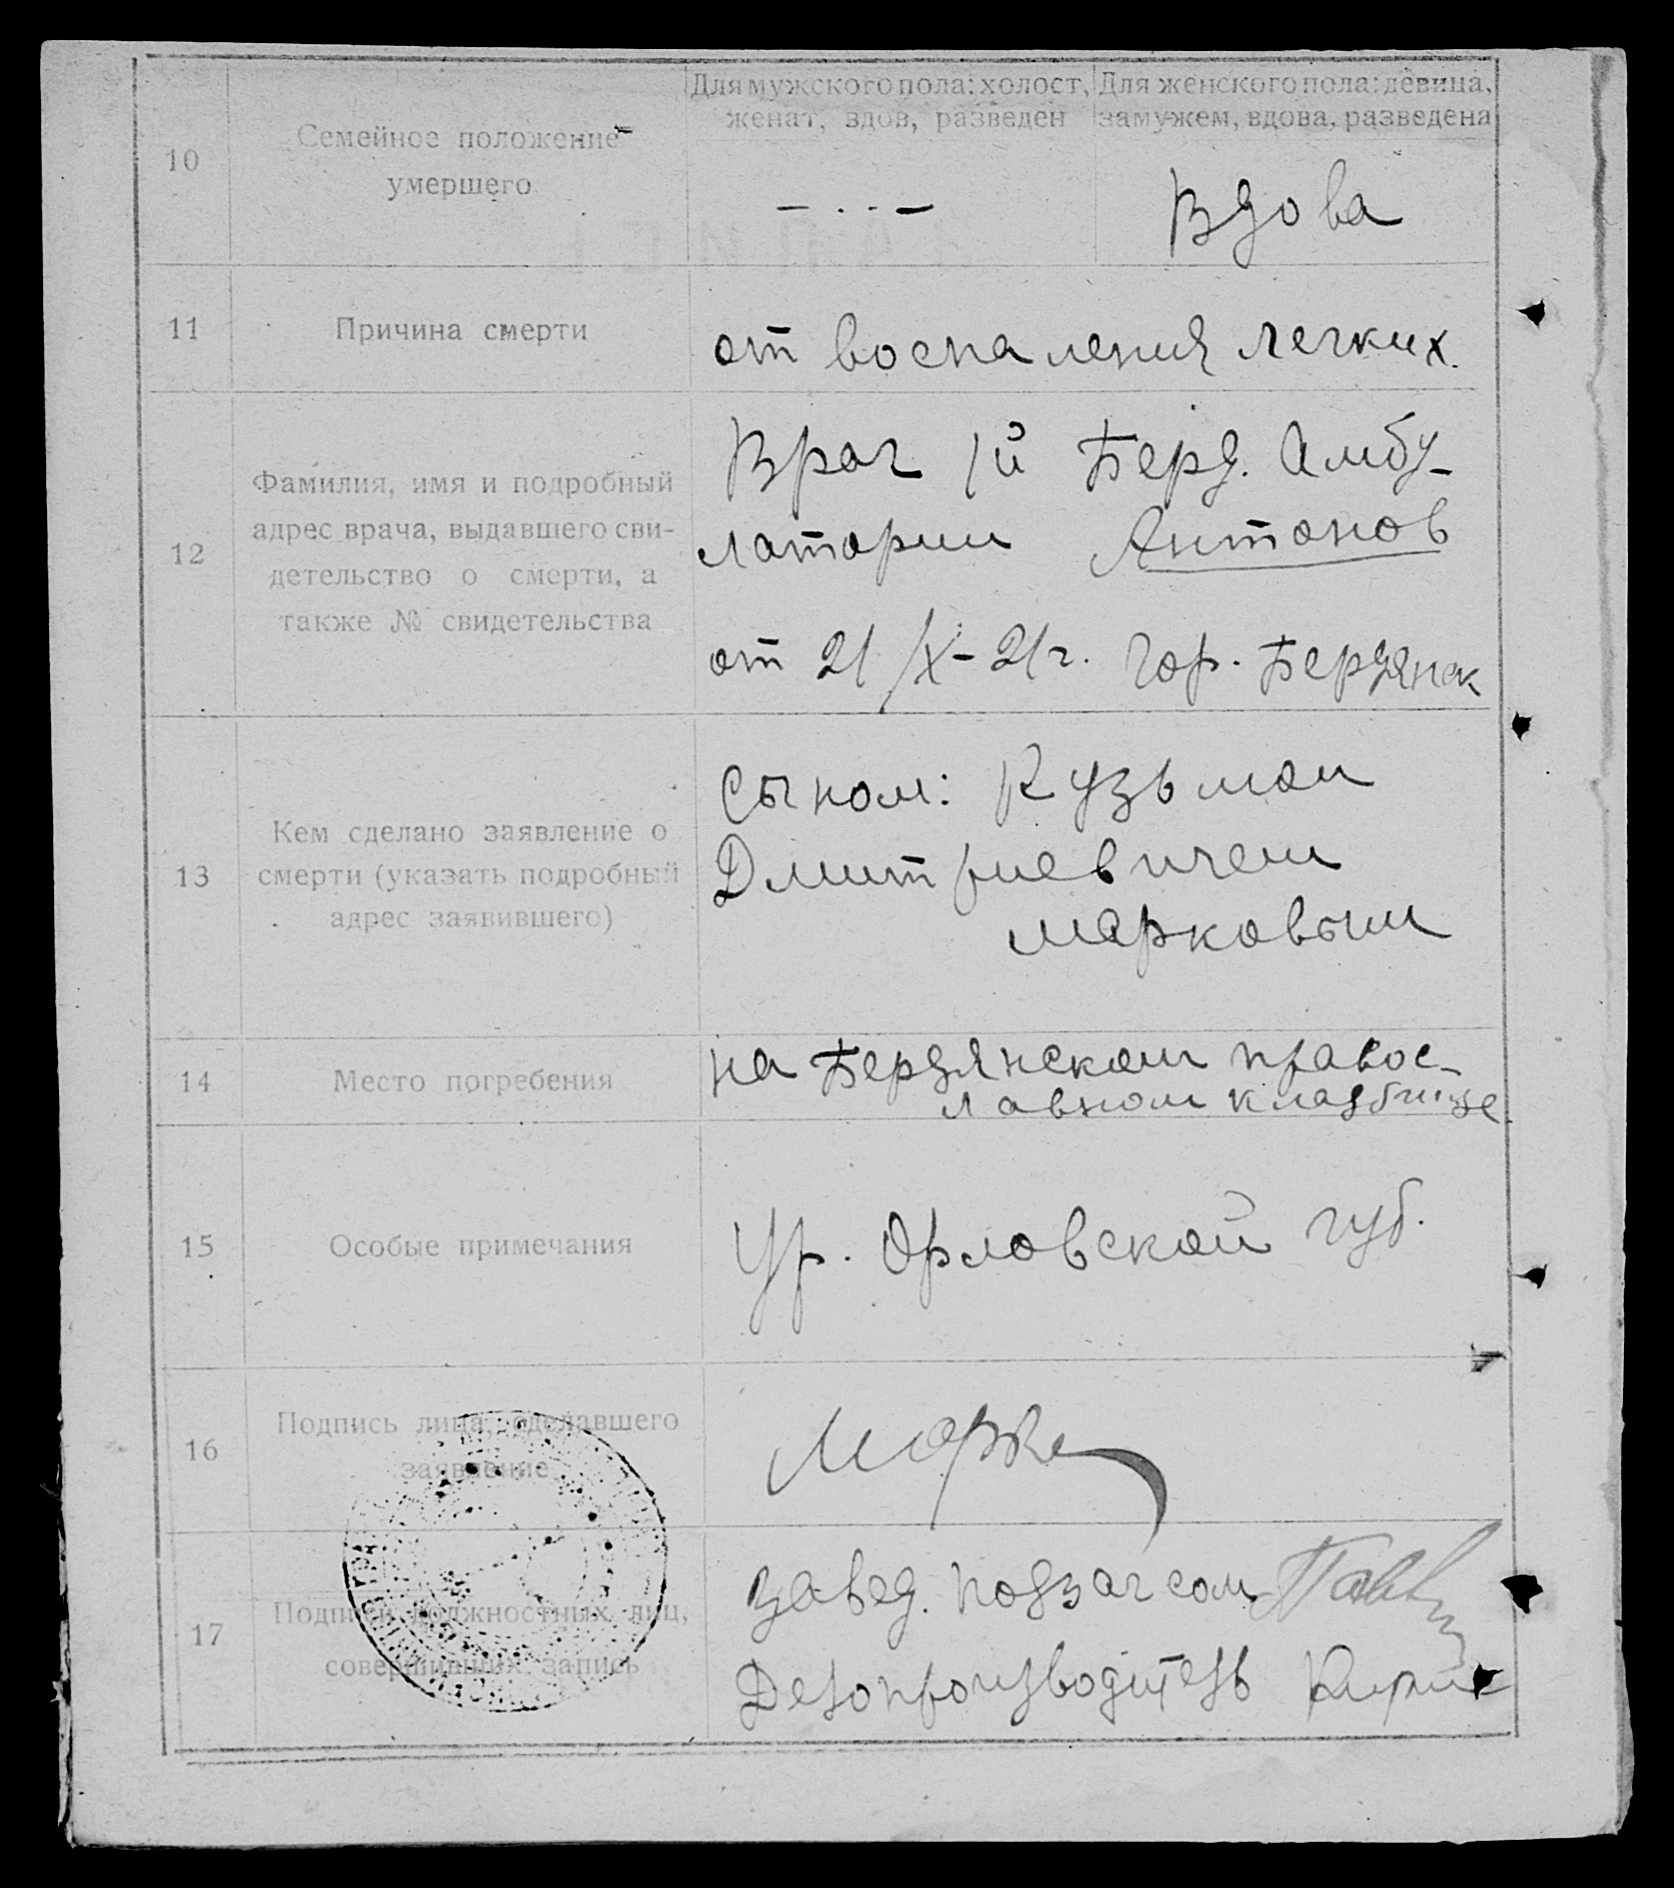 Для мужского пола: холост, женат, вдов, разведен
Для женского пола: девица, замужем, вдова, разведена
10
Семейное положение
умершего
— · · —
Вдова
11
Причина смерти
от воспаления легких.
12
Фамилия, имя и подробный
адрес врача, выдавшего сви-
детельство о смерти, а
также № свидетельства
Врач 1й Берд. Амбу-
латории Антонов
от 21/X-21г. гор. Бердянск
13
Кем сделано заявление о
смерти (указать подробный
адрес заявившего)
Сыном: Кузьмой
Дмитриевичем
Марковым
14
Место погребения
на Бердянском правос-
лавном кладбище
15
Особые примечания
Ур. Орловской губ.
16
Подпись лица, сделавшего
заявление
17
Подписи должностных лиц,
совершивших запись
Завед. подзагсом
Делопроизводитель